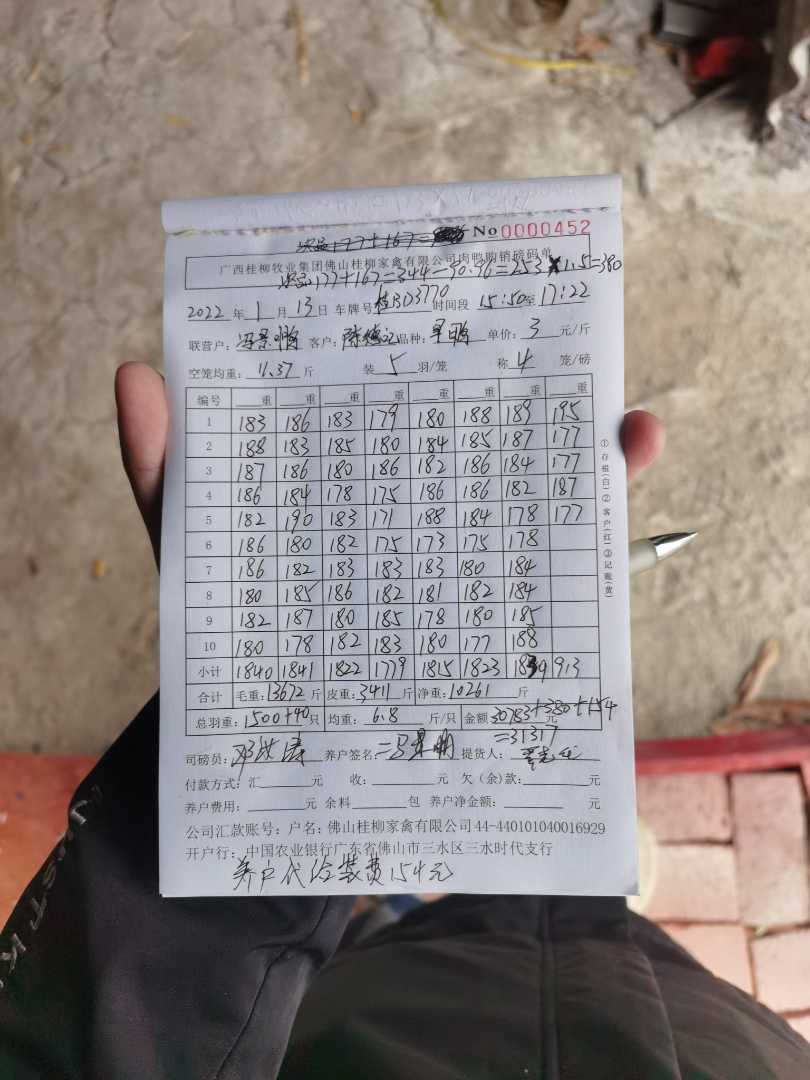 次品177+167=
No 0000452
广西桂柳牧业集团佛山桂柳家禽有限公司肉鸭购销磅码单
次品177+167=344-90.96=253×1.5=380
2022年1月13日 车牌号桂BD3770 时间段 15:50至17:22
联营户:冯景鹏 客户: 品种: 单价:3元/斤
空笼均重:11.37斤 装5羽/笼 称4笼/磅
编号 重 重 重 重 重 重 重 重
1 183 186 183 179 180 188 189 195
2 188 183 185 180 184 185 187 177
3 187 186 180 186 182 186 184 177
4 186 184 178 175 186 186 182 187
5 182 190 183 171 188 184 178 177
6 186 180 182 175 173 175 178
7 186 182 183 183 183 180 184
8 180 185 186 182 181 182 184
9 182 187 180 185 178 180 185
10 180 178 182 183 180 177 188
小计 1840 1841 1822 1779 1815 1823 1839 913
合计 毛重:13672斤 皮重:3411斤 净重:10261斤
总羽重:1500+40只 均重:6.8斤/只 金额30783+380+154元
=31317
司磅员: 养户签名: 提货人:
付款方式:汇 元 收: 元 欠(余)款: 元
养户费用: 元 余料 包 养户净金额: 元
公司汇款账号:户名:佛山桂柳家禽有限公司44-440101040016929
开户行:中国农业银行广东省佛山市三水区三水时代支行
养户代给装费154元
①存根(白)②客户(红)③记账(黄)